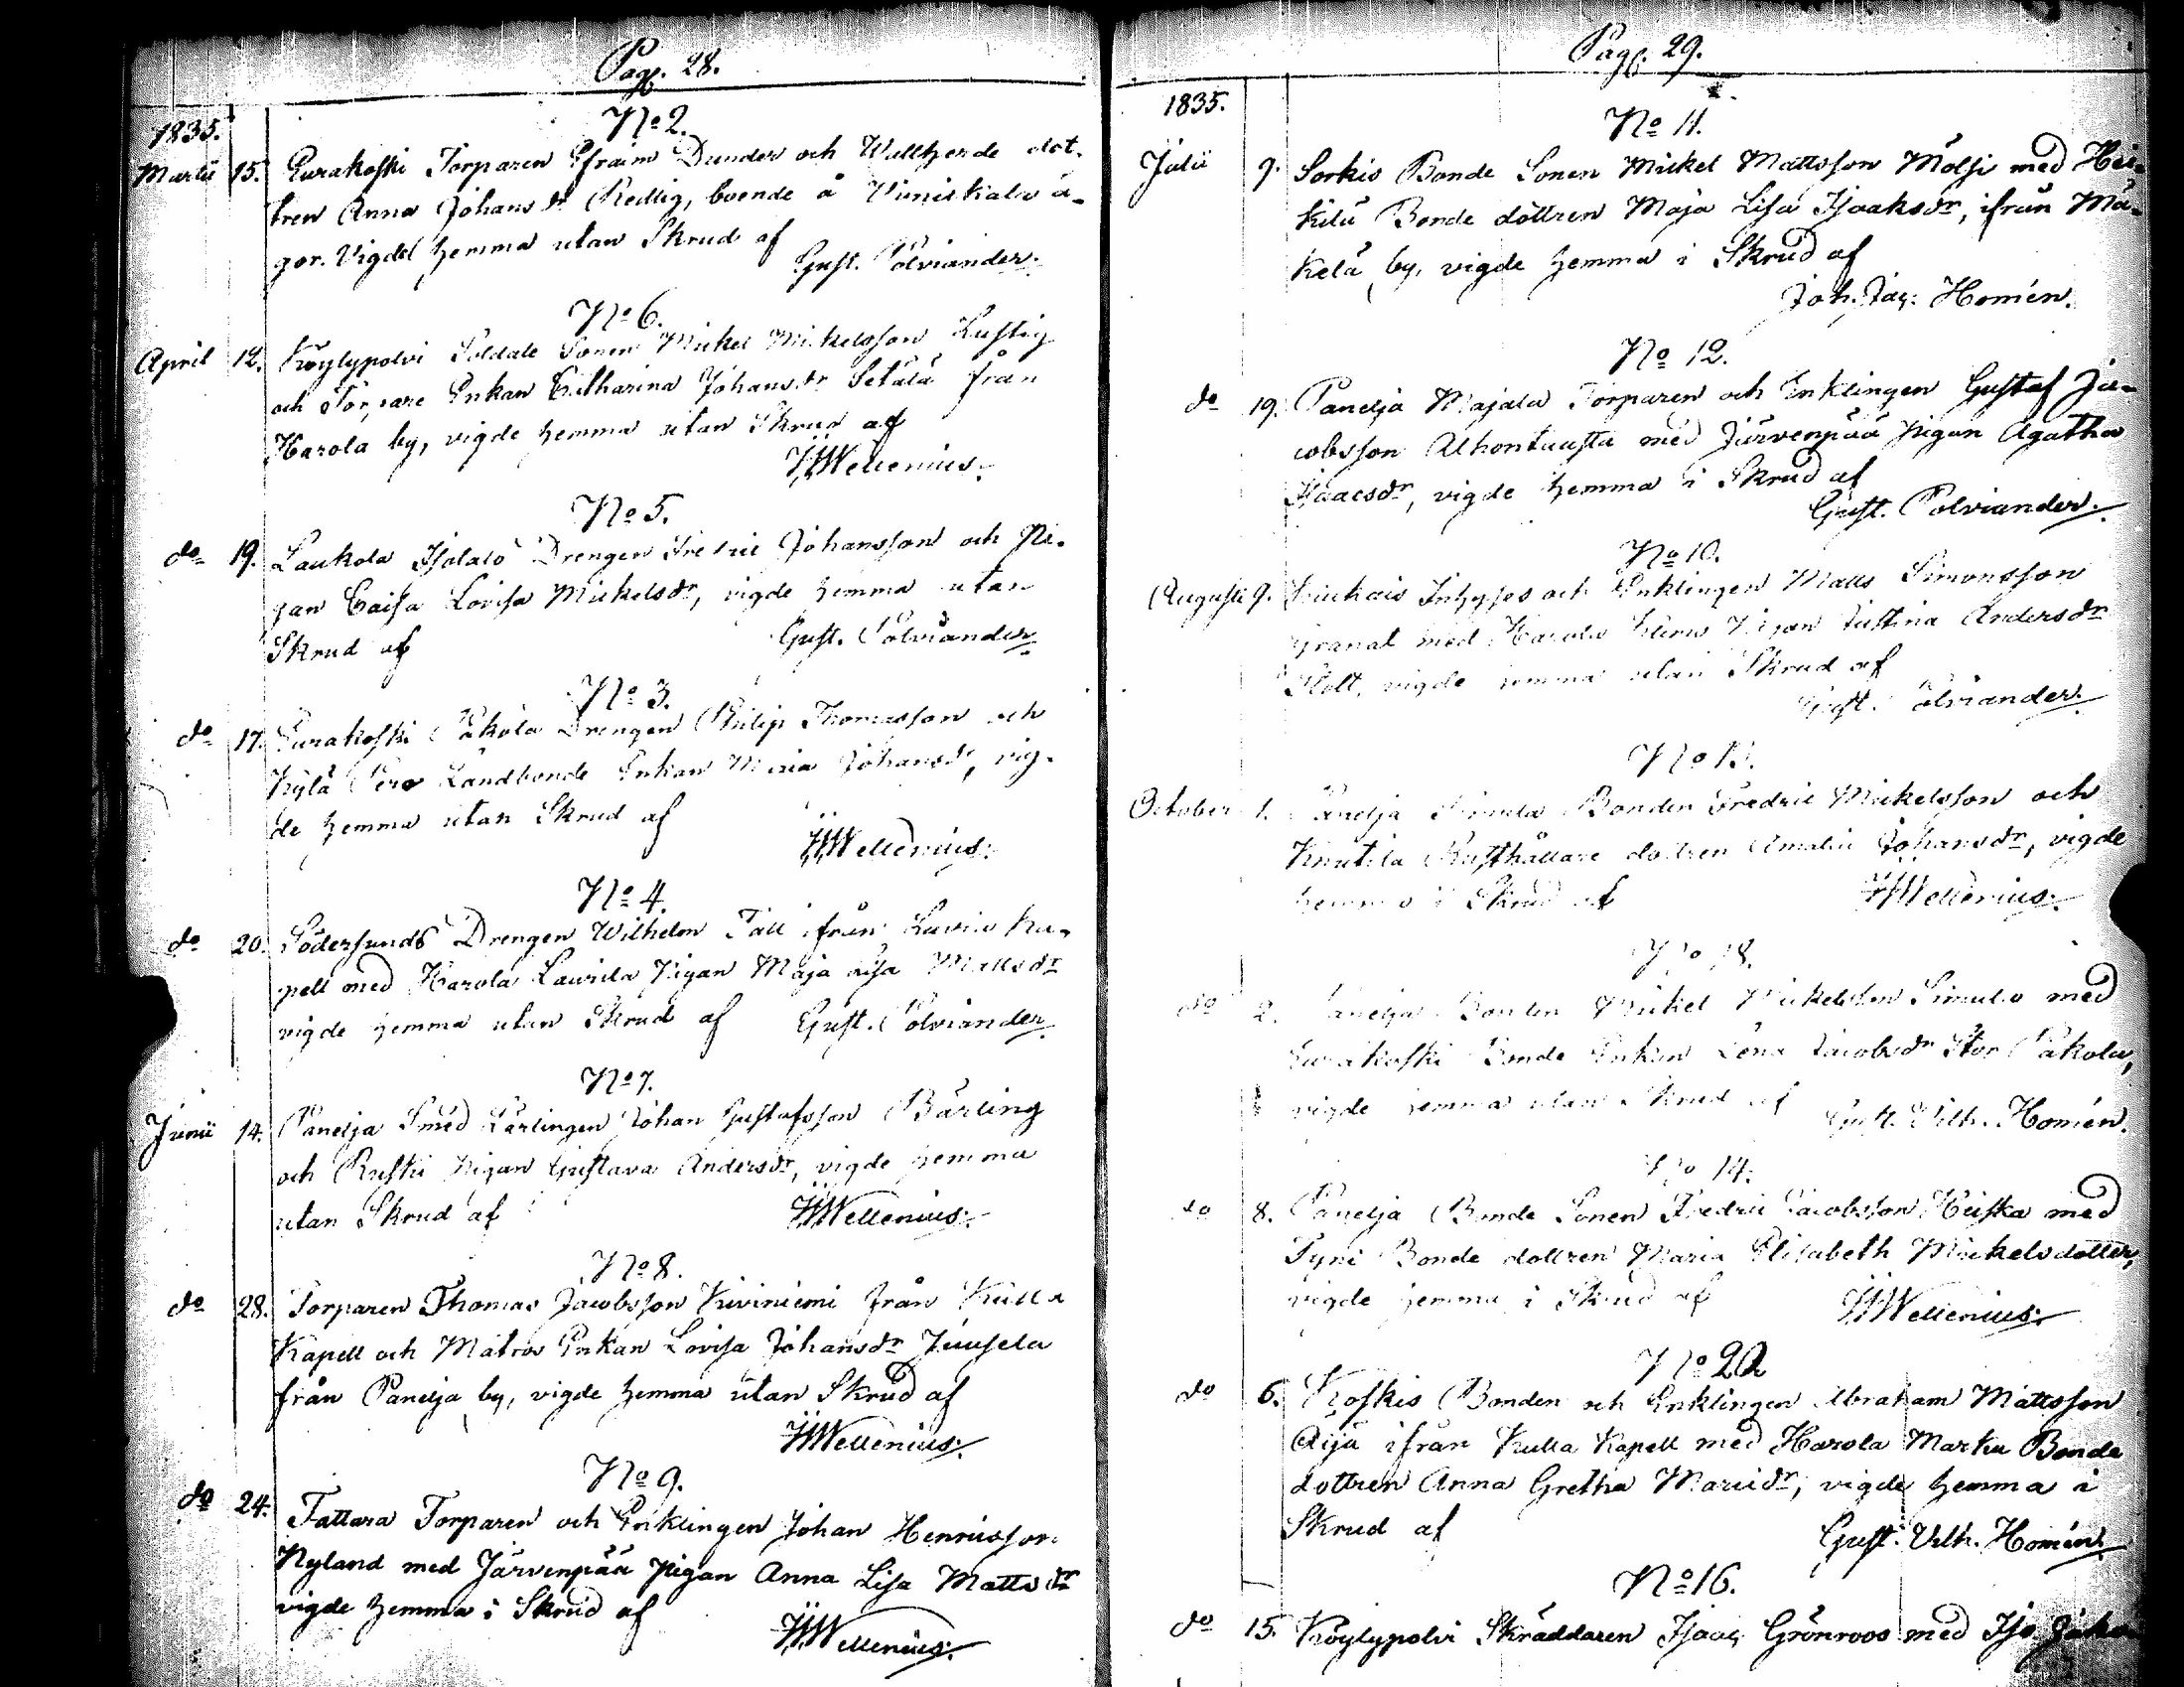 Pag. 28.
1835.
No 2.
Martii 15. Eurakoski Torparen Efraim Dunder och Wallherde dot-
tren Anna Johans dr Redlig, boende å ä-
gor. Vigde hemma utan Skrud af
Gust. Polviander.
No 6.
April 12. Köylypolvi Soldate Sonen Mickel Mickelsson Lustig
och Torpare Enkan Catharina Johansdr Setälä från
Harola by, vigde hemma utan Skrud af
Wellenius.
No 5.
do 19. Laukola Isotalo Drengen Fredric Johansson och Pi-
gan Caisa Lovisa Mickelsdr, vigde hemma utan
Skrud af
Gust. Polviander
No 3.
do 17. Eurakoski Päkola Drengen Philip Thomasson och
Kylä Pero Landbonde Enkan Maria Johansdr, vig-
de hemma utan Skrud af
Wellenius.
No 4.
do 20. Södersunds Drengen Wilhelm Täll ifrån Luvia Ka-
pell med Harola Laurila Pigan Maja Lisa Mattsdr
vigde hemma utan Skrud af Gust. Polviander
No 7.
Junii 14. Panelja Smed Lärlingen Johan Gustafsson Bärling
och Ruski Pigan Gustava Andersdr, vigde hemma
utan Skrud af
Wellenius.
No 8.
do 28. Torparen Thomas Jacobsson Kiviniemi från Kulla
Kapell och Matros Enkan Lovisa Johansdr Juusela
från Panelja by, vigde hemma utan Skrud af
Wellenius.
No 9.
do 24. Tattara Torparen och Enklingen Johan Henricsson
Nyland med Järvenpää pigan Anna Lisa Mattsdr
vigde hemma i Skrud af
Wellenius.
Pag. 29.
1835.
No 11.
Julii 9. Sorkis Bonde Sonen Mickel Mattsson Mölsi med Hei-
kilä Bonde dottren Maja Lisa Isaaksdr, ifrån Mä-
kelä by, vigde hemma i Skrud af
Joh. Jac. Homén.
No 12.
do 19. Panelja Majala Torparen och Enklingen Gustaf Ja-
cobsson Alhontausta med Järvenpää pigan Agatha
Isaacsdr, vigde hemma i Skrud af
Gust. Polviander.
No 10.
Augusti 9. Inhyses och Enklingen Matts Simonsson
Granat med Harola Pigan Justina Andersdr
Stolt, vigde hemma utan Skrud af
Gust. Polviander.
October 1. Panelja Bonden Fredric Mickelsson och
Knutila Rusthållare dottren Amalia Johansdr, vigde
hemma i Skrud af
Wellenius.
No 18.
do 2. Panelja Bonden Mickel Mickelsson Simula med
Eurakoski Bonde Enkan Lena Jacobsdr Stor Päkola,
vigde hemma utan Skrud af Gust. Vilh. Homén.
No 14.
do 8. Panelja Bonde Sonen Fredric Jacobsson Heiska med
Pyni Bonde dottren Maria Elisabeth Mickelsdotter,
vigde hemma i Skrud af
Wellenius.
No 20
do 6. Koskis Bonden och Enklingen Abraham Mattsson
Äijä ifrån Kulla Kapell med Harola Marku Bonde
dottren Anna Gretha Maridr, vigde hemma i
Skrud af
Gust. Vilh. Homén
No 16.
do 15. Köylypolvi Skräddaren Isaac Grönroos med Iso